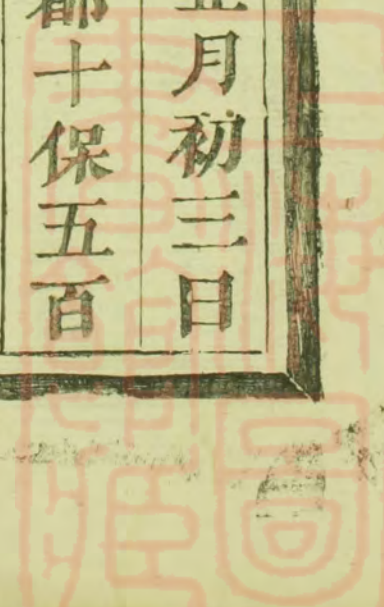 正月初三日
都十保五百